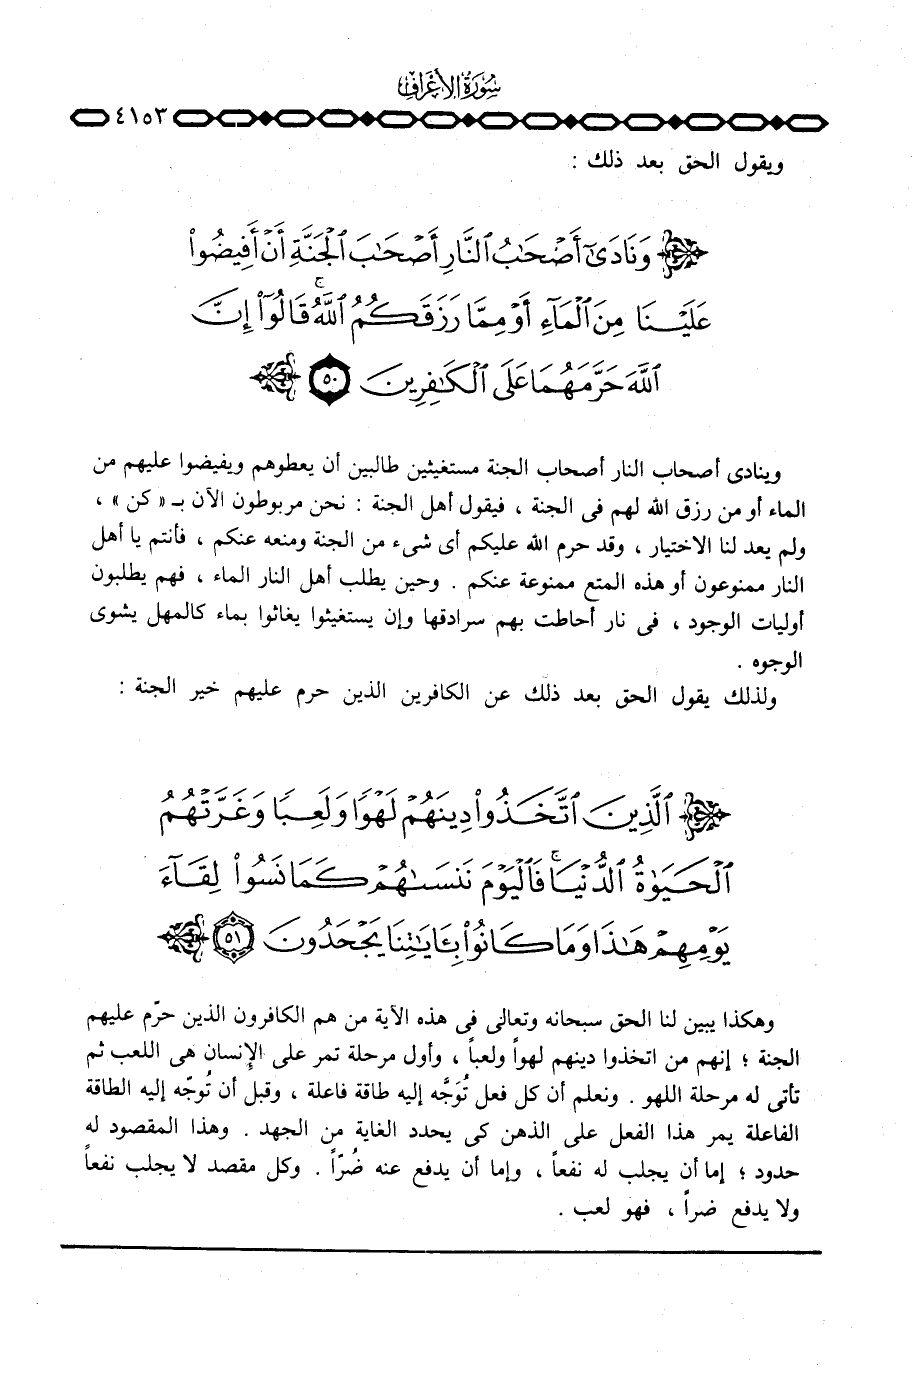 سُورَةُ الأَعْرَافِ
٤١٥٣
ويقول الحق بعد ذلك :
وَنَادَىٰٓ أَصْحَٰبُ ٱلنَّارِ أَصْحَٰبَ ٱلْجَنَّةِ أَنْ أَفِيضُوا۟
عَلَيْنَا مِنَ ٱلْمَآءِ أَوْ مِمَّا رَزَقَكُمُ ٱللَّهُ ۚ قَالُوٓا۟ إِنَّ
ٱللَّهَ حَرَّمَهُمَا عَلَى ٱلْكَٰفِرِينَ ٥٠
وينادى أصحاب النار أصحاب الجنة مستغيثين طالبين أن يعطوهم ويفيضوا عليهم من
الماء أو من رزق الله لهم فى الجنة ، فيقول أهل الجنة : نحن مربوطون الآن بـ « كن » ،
ولم يعد لنا الاختيار ، وقد حرم الله عليكم أى شىء من الجنة ومنعه عنكم ، فأنتم يا أهل
النار ممنوعون أو هذه المتع ممنوعة عنكم . وحين يطلب أهل النار الماء ، فهم يطلبون
أوليات الوجود ، فى نار أحاطت بهم سرادقها وإن يستغيثوا يغاثوا بماء كالمهل يشوى
الوجوه .
ولذلك يقول الحق بعد ذلك عن الكافرين الذين حرم عليهم خير الجنة :
ٱلَّذِينَ ٱتَّخَذُوا۟ دِينَهُمْ لَهْوًا وَلَعِبًا وَغَرَّتْهُمُ
ٱلْحَيَوٰةُ ٱلدُّنْيَا ۚ فَٱلْيَوْمَ نَنسَىٰهُمْ كَمَا نَسُوا۟ لِقَآءَ
يَوْمِهِمْ هَٰذَا وَمَا كَانُوا۟ بِـَٔايَٰتِنَا يَجْحَدُونَ ٥١
وهكذا يبين لنا الحق سبحانه وتعالى فى هذه الآية من هم الكافرون الذين حرّم عليهم
الجنة ؛ إنهم من اتخذوا دينهم لهواً ولعباً ، وأول مرحلة تمر على الإنسان هى اللعب ثم
تأتى له مرحلة اللهو . ونعلم أن كل فعل تُوَجَّه إليه طاقة فاعلة ، وقبل أن تُوجّه إليه الطاقة
الفاعلة يمر هذا الفعل على الذهن كى يحدد الغاية من الجهد . وهذا المقصود له
حدود ؛ إما أن يجلب له نفعاً ، وإما أن يدفع عنه ضُرّاً . وكل مقصد لا يجلب نفعاً
ولا يدفع ضراً ، فهو لعب .